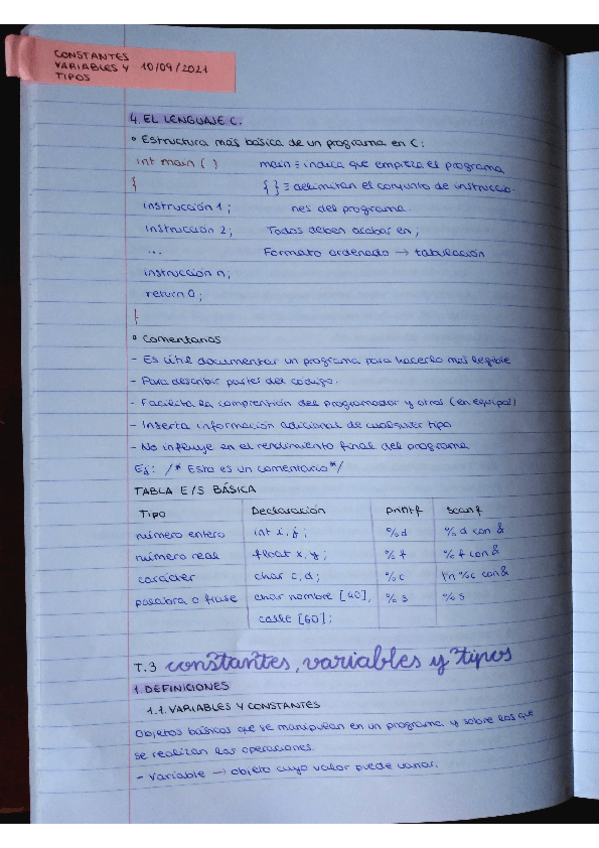 CONSTANTES
VARIABLES Y 10/09/2021
TIPOS
4. EL LENGUAJE C.
° Estructura más básica de un programa en C:
int main ( ) main ≡ indica que empieza el programa
{ { } ≡ delimitan el conjunto de instruccio-
instrucción 1 ; nes del programa
instrucción 2 ; Todas deben acabar en ;
... Formato ordenado → tabulación
instrucción n;
return 0 ;
}
° Comentarios
- Es útil documentar un programa para hacerlo más legible
- Para describir partes del código.
- Facilita la comprensión del programador y otros (en equipos)
- Inserta información adicional de cualquier tipo
- No influye en el rendimiento final del programa
Ej: /* Esto es un comentario */
TABLA E/S BÁSICA
Tipo Declaración printf scanf
número entero int i, j ; %d %d con &
número real float x, y ; %f %f con &
carácter char c, d ; %c \n %c con &
palabra o frase char nombre [40], %s %s
calle [60] ;
T.3 constantes, variables y tipos
1. DEFINICIONES
1.1. VARIABLES Y CONSTANTES
Objetos básicos que se manipulan en un programa y sobre los que
se realizan las operaciones.
- Variable → objeto cuyo valor puede variar.